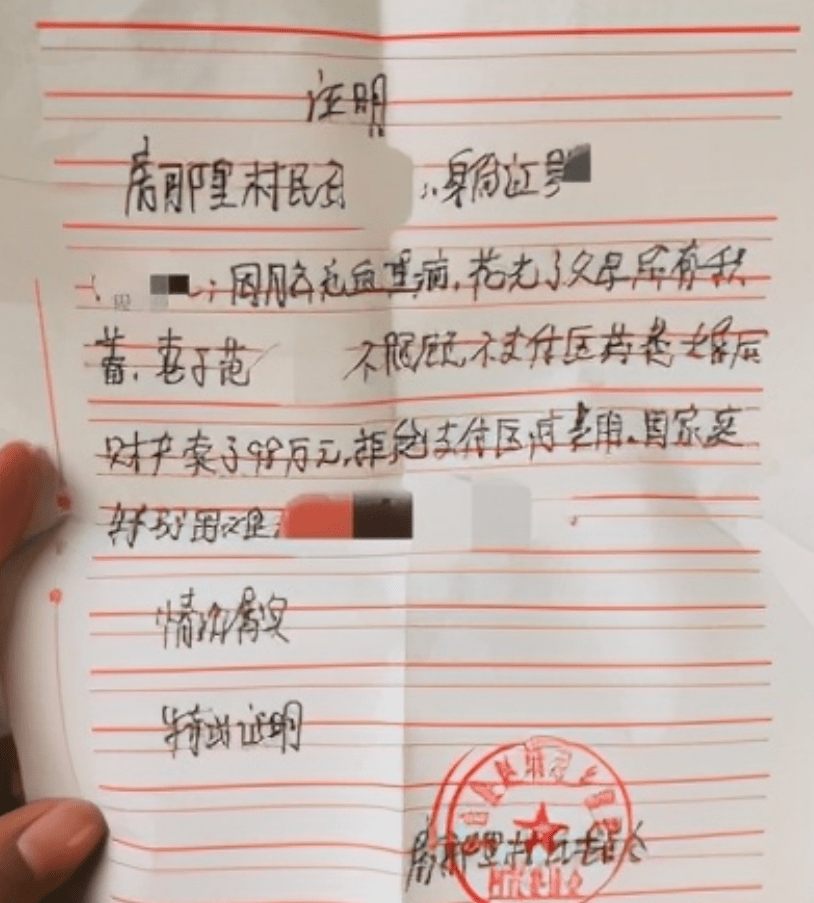 证明
房那里村民 身份证号
因脑充血重病,花光了父母所有积
蓄,妻子范 不照顾不支付医药费婚后
财产卖了98万元,拒绝支付医疗费用.因家庭
特别困难
情况属实
特此证明
房那里村